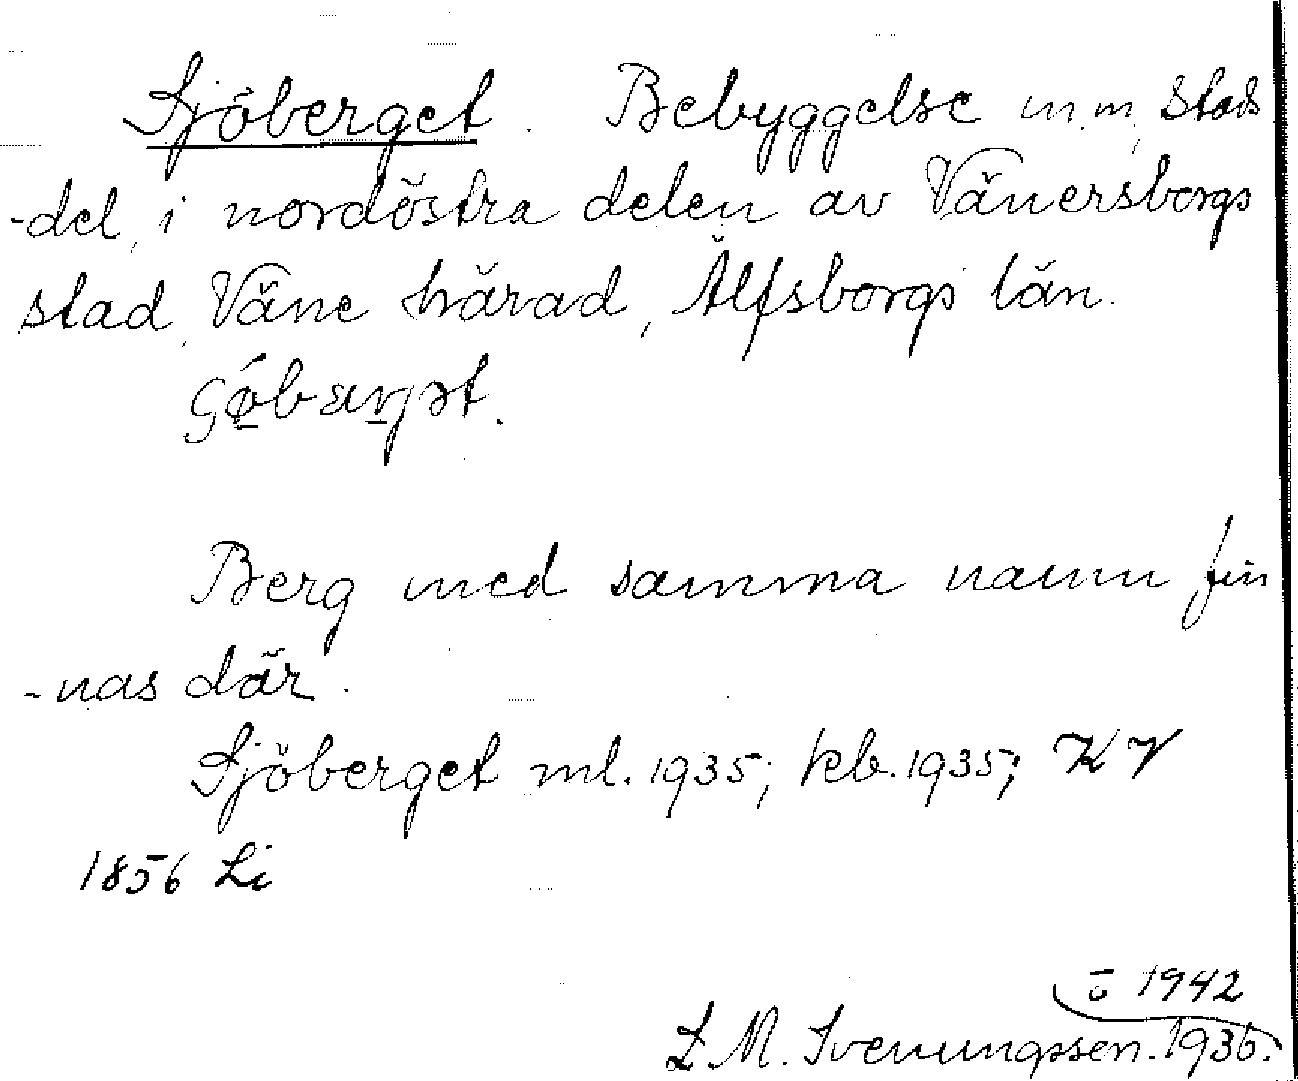 Sjöberget. Bebyggelse m.m, Stads
-del, i nordöstra delen av Vänersborgs
stad, Väne härad, Älfsborgs län.
Berg med samma namn fin
-nas där.
Sjöberget ml. 1935; kb. 1935; KV
1856 Li
ö 1942
L. M. Svenungsson. 1936.